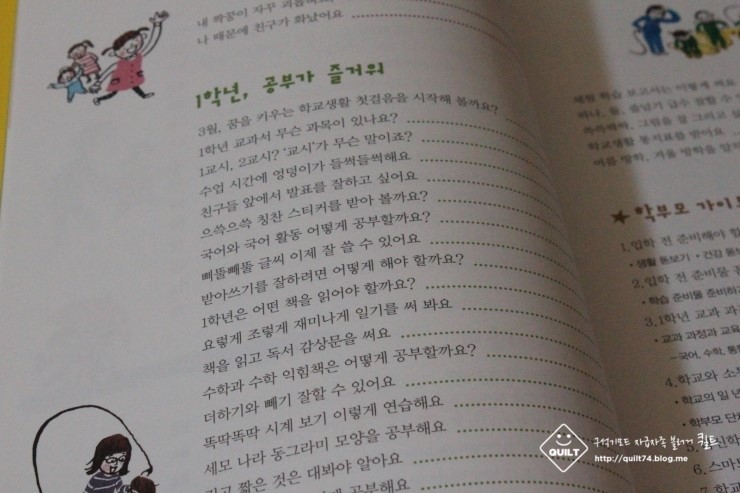 내 짝꿍이 자꾸
나 때문에 친구가 화났어요
1학년, 공부가 즐거워
3월, 꿈을 키우는 학교생활 첫걸음을 시작해 볼까요?
1학년 교과서 무슨 과목이 있나요?
1교시, 2교시? '교시'가 무슨 말이죠?
수업 시간에 엉덩이가 들썩들썩해요
친구들 앞에서 발표를 잘하고 싶어요
으쓱으쓱 칭찬 스티커를 받아 볼까요?
국어와 국어 활동 어떻게 공부할까요?
삐뚤빼뚤 글씨 이제 잘 쓸 수 있어요
받아쓰기를 잘하려면 어떻게 해야 할까요?
1학년은 어떤 책을 읽어야 할까요?
요렇게 조렇게 재미나게 일기를 써 봐요
책을 읽고 독서 감상문을 써요
수학과 수학 익힘책은 어떻게 공부할까요?
더하기와 빼기 잘할 수 있어요
똑딱똑딱 시계 보기 이렇게 연습해요
세모 나라 동그라미 모양을 공부해요
길고 짧은 것은 대봐야 알아요
공부해요
체험 학습 보고서는 이렇게 써요
하나, 둘, 줄넘기 급수 잘할 수
쓱쓱싹싹, 그림을 잘 그리고
학교생활 통지표를 받아요
여름 방학, 겨울 방학을
★ 학부모 가이드
1.입학 전 준비해야 할
• 생활 돋보기 • 건강 돋보
2.입학 전 준비물
• 학습 준비물 준비하
3.1학년 교과 과
• 교과 과정과 교육
-국어, 수학, 통합
4.학교와 소
• 학교의 일 년
• 학부모 단체
6. 스마
QUILT
구석기모드 자급자족 블로거 퀼트
http://quilt74.blog.me